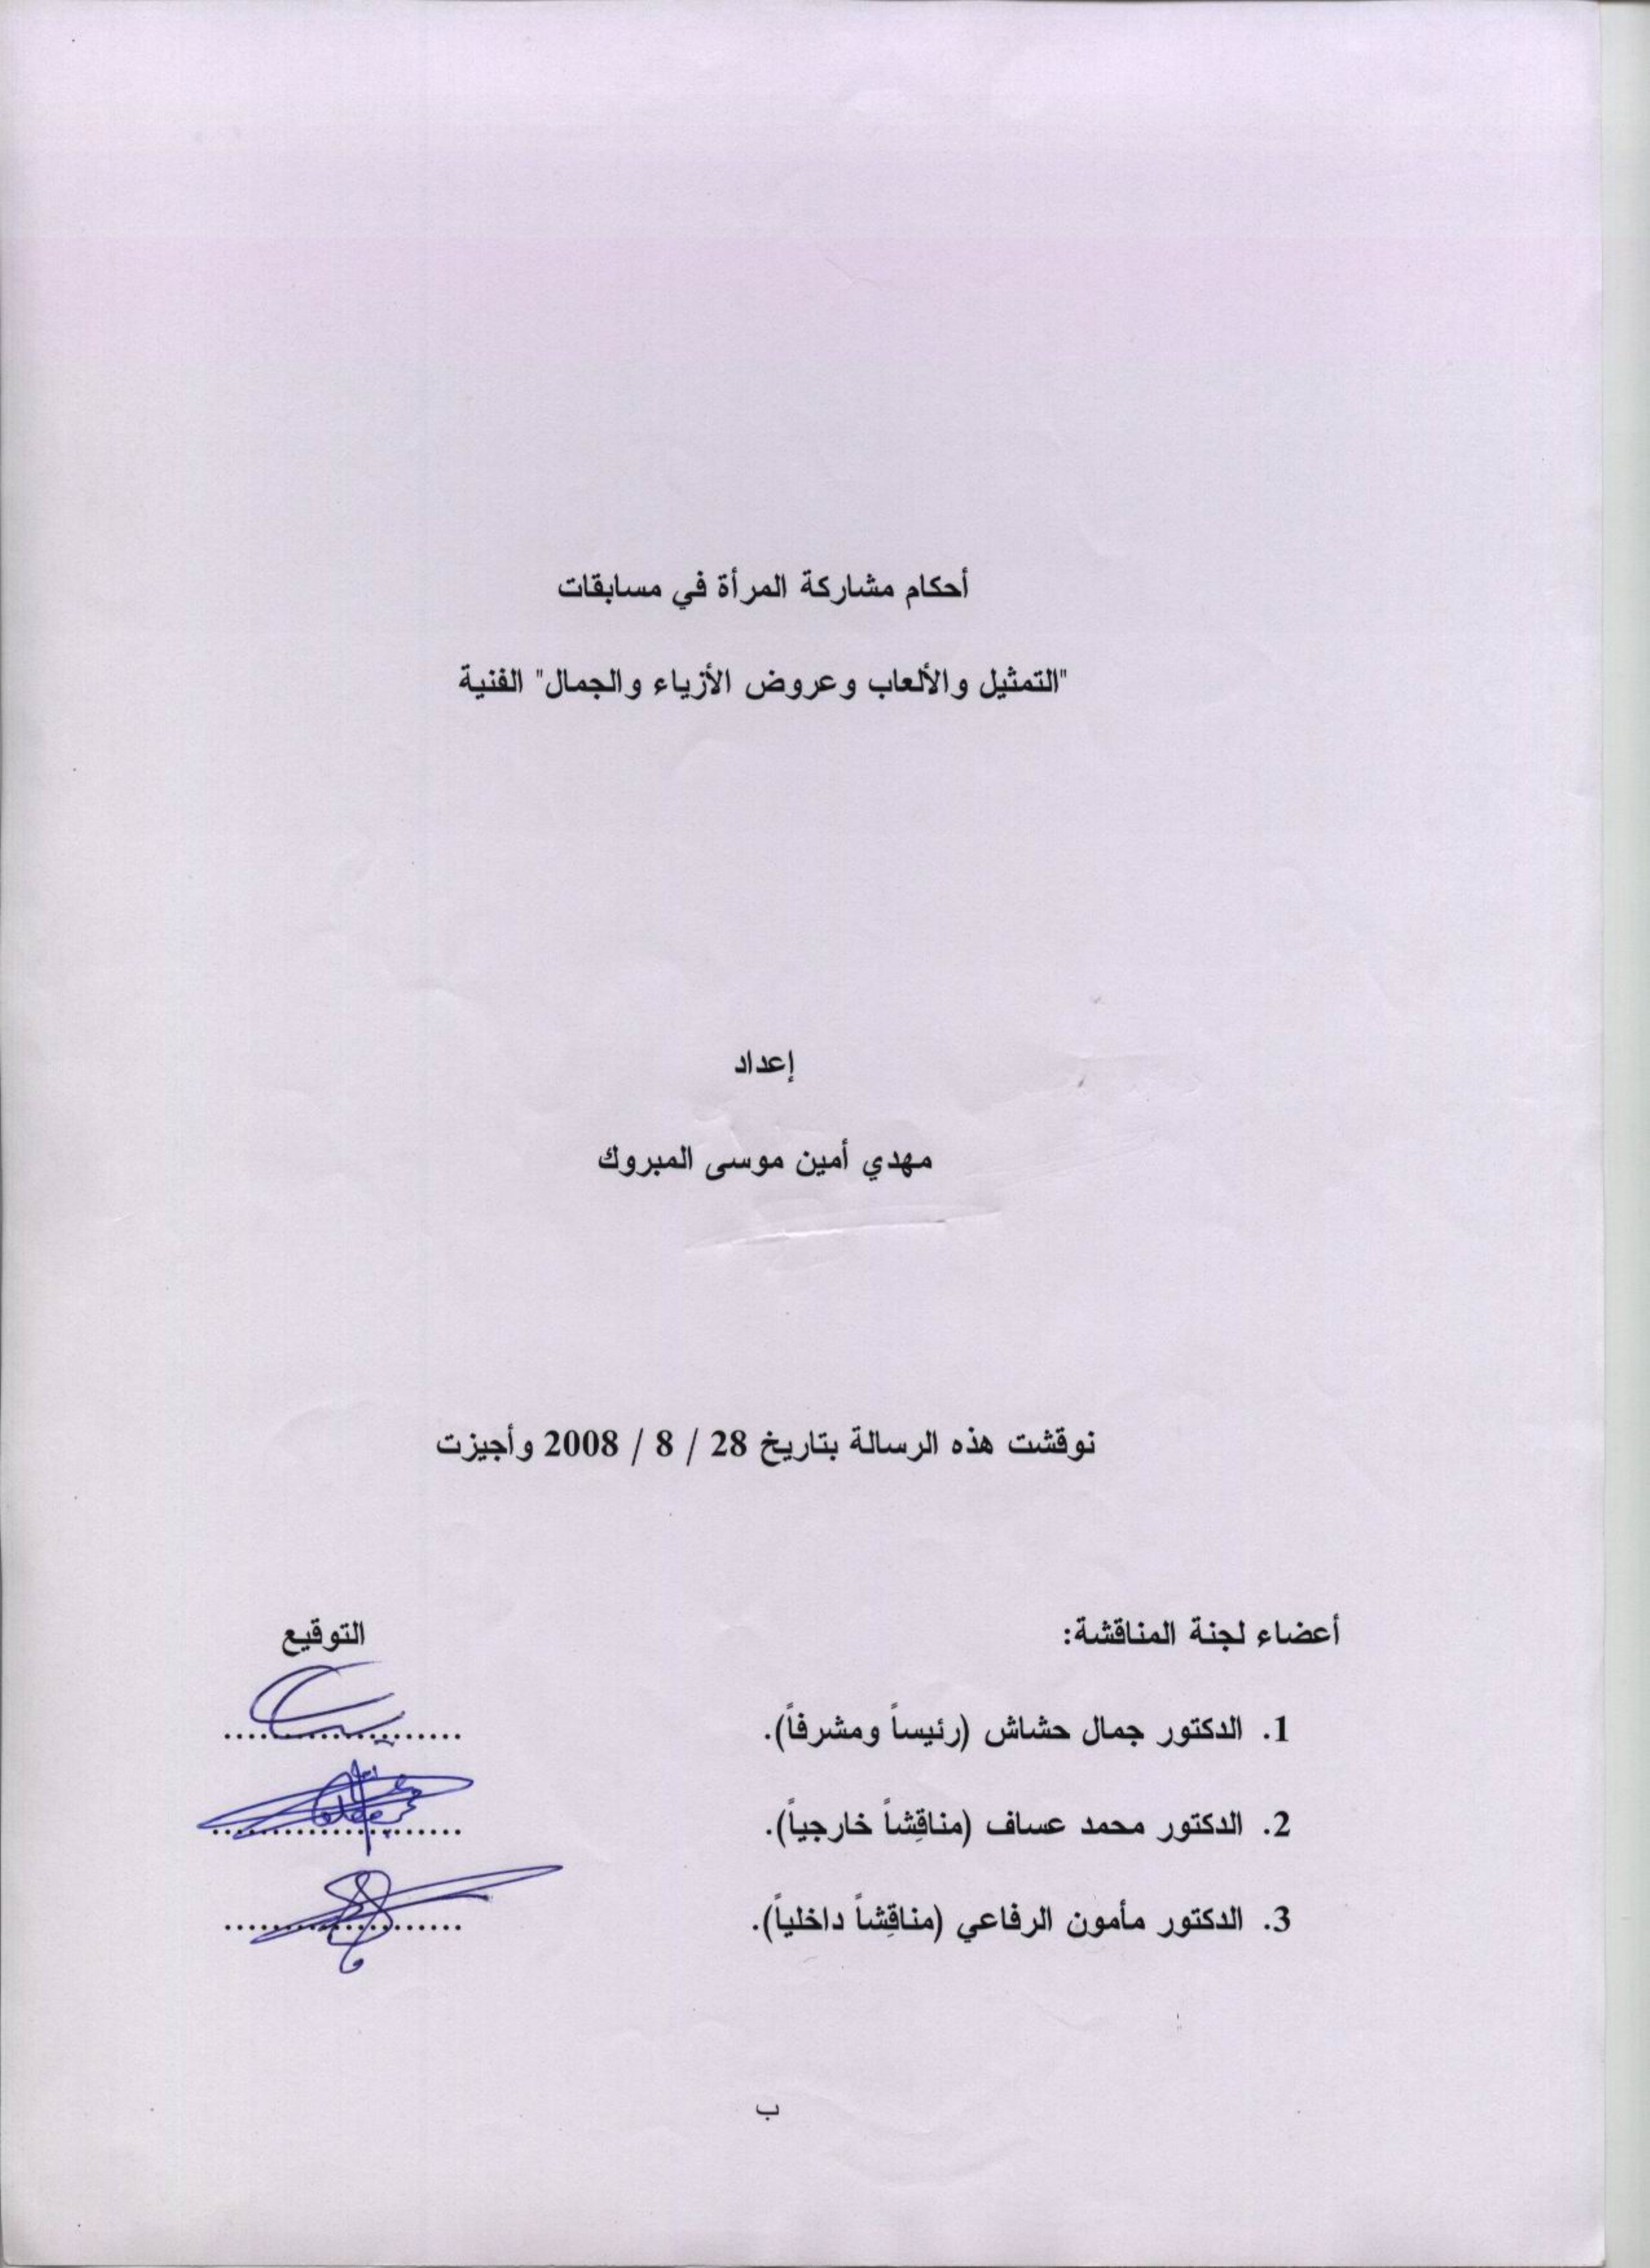 أحكام مشاركة المرأة في مسابقات
"التمثيل والألعاب وعروض الأزياء والجمال" الفنية
إعداد
مهدي أمين موسى المبروك
نوقشت هذه الرسالة بتاريخ 28 / 8 / 2008 وأجيزت
أعضاء لجنة المناقشة: التوقيع
1. الدكتور جمال حشاش (رئيساً ومشرفاً). ......................
2. الدكتور محمد عساف (مناقِشاً خارجياً). ......................
3. الدكتور مأمون الرفاعي (مناقِشاً داخلياً). ......................
ب